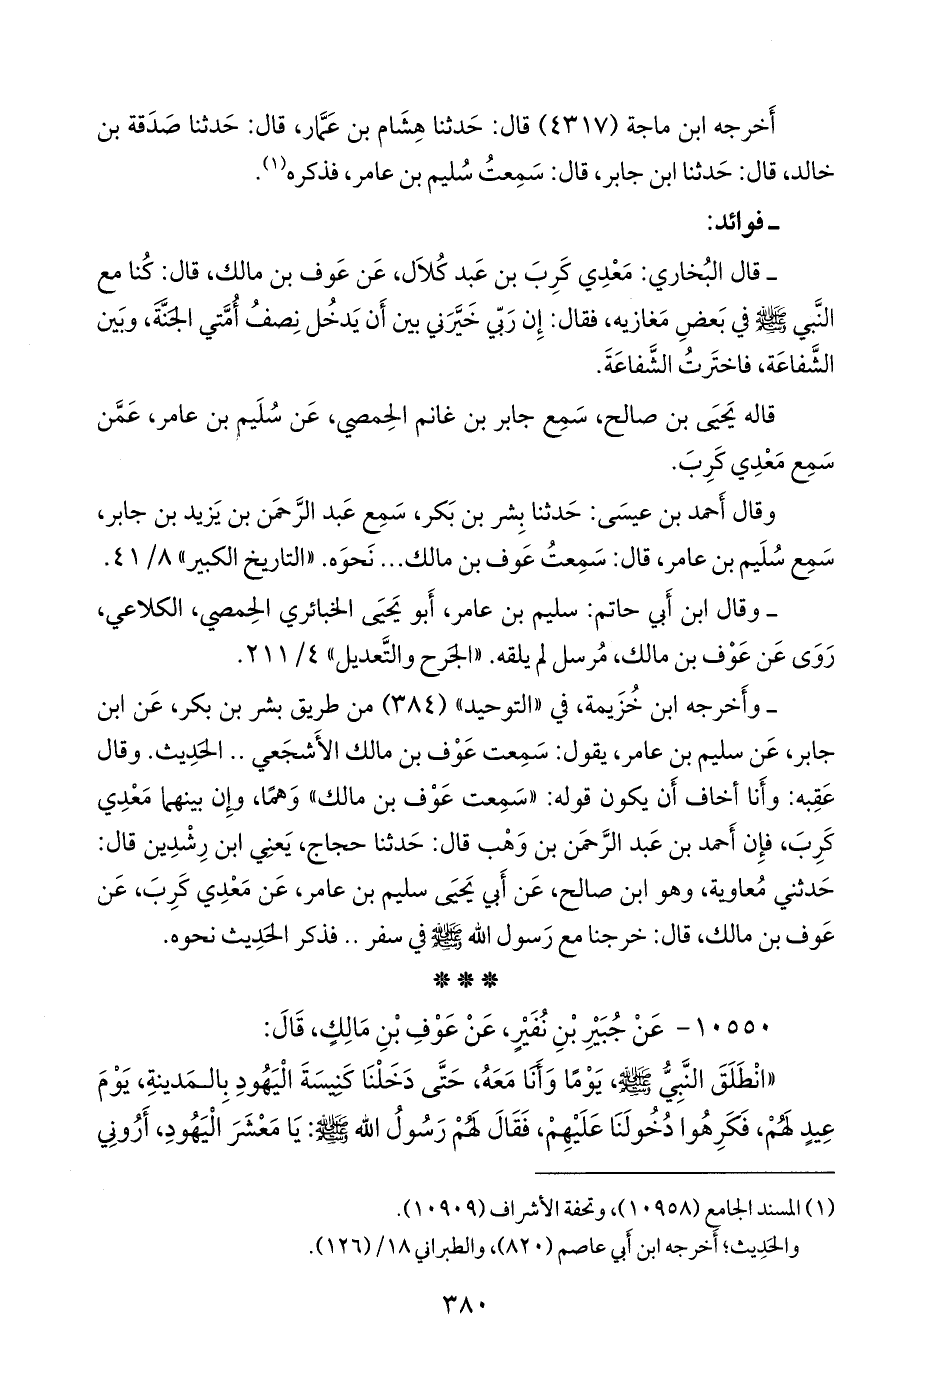 أَخرجه ابن ماجة (٤٣١٧) قال: حَدثنا هِشَام بن عَمَّار، قال: حَدثنا صَدَقة بن
خالد، قال: حَدثنا ابن جابر، قال: سَمِعتُ سُليم بن عامر، فذكره(١).
ـ فوائد:
ـ قال البُخاري: مَعْدِي كَرِبَ بن عَبد كُلاَل، عَن عَوف بن مالك، قال: كُنا مع
النَّبي ﷺ في بَعضِ مَغازيه، فقال: إِن رَبِّي خَيَّرَني بين أَن يَدخُل نِصفُ أُمَّتي الجَنَّةَ، وبَين
الشَّفاعَة، فاختَرتُ الشَّفاعَةَ.
قاله يَحيَى بن صالح، سَمِع جابر بن غانم الحِمصي، عَن سُلَيم بن عامر، عَمَّن
سَمِع مَعْدِي كَرِبَ.
وقال أَحمد بن عيسَى: حَدثنا بِشر بن بَكر، سَمِع عَبد الرَّحمَن بن يَزيد بن جابر،
سَمِع سُلَيم بن عامر، قال: سَمعتُ عَوف بن مالك... نَحوَه. «التاريخ الكبير» ٨/ ٤١.
ـ وقال ابن أَبي حاتم: سليم بن عامر، أَبو يَحيَى الخبائري الحِمصي، الكلاعي،
رَوَى عَن عَوْف بن مالك، مُرسل لم يلقه. «الجَرح والتَّعديل» ٤/ ٢١١.
ـ وأَخرجه ابن خُزَيمة، في «التوحيد» (٣٨٤) من طريق بشر بن بكر، عَن ابن
جابر، عَن سليم بن عامر، يقول: سَمِعت عَوْف بن مالك الأَشجَعي .. الحَدِيث. وقال
عَقِبه: وأَنا أخاف أَن يكون قوله: «سَمِعت عَوْف بن مالك» وَهمًا، وإِن بينهما مَعْدِي
كَرِبَ، فإِن أَحمد بن عَبد الرَّحمَن بن وَهْب قال: حَدثنا حجاج، يَعنِي ابن رِشْدِين قال:
حَدثني مُعاوية، وهو ابن صالح، عَن أَبي يَحيَى سليم بن عامر، عَن مَعْدِي كَرِبَ، عَن
عَوف بن مالك، قال: خرجنا مع رَسول الله ﷺ في سفر .. فذكر الحَدِيث نحوه.
* * *
١٠٥٥٠- عَنْ جُبَيْرِ بْنِ نُفَيْرٍ، عَنْ عَوْفِ بْنِ مَالِكٍ، قَالَ:
«انْطَلَقَ النَّبِيُّ ﷺ، يَوْمًا وَأَنَا مَعَهُ، حَتَّى دَخَلْنَا كَنِيسَةَ الْيَهُودِ بِالْـمَدينةِ، يَوْمَ
عِيدٍ لَهُمْ، فَكَرِهُوا دُخُولَنَا عَلَيْهِمْ، فَقَالَ لَهُمْ رَسُولُ الله ﷺ: يَا مَعْشَرَ الْيَهُودِ، أَرُونِي
(١) المسند الجامع (١٠٩٥٨)، وتحفة الأشراف (١٠٩٠٩).
والحَدِيث؛ أَخرجه ابن أَبي عاصم (٨٢٠)، والطبراني ١٨/ (١٢٦).
٣٨٠